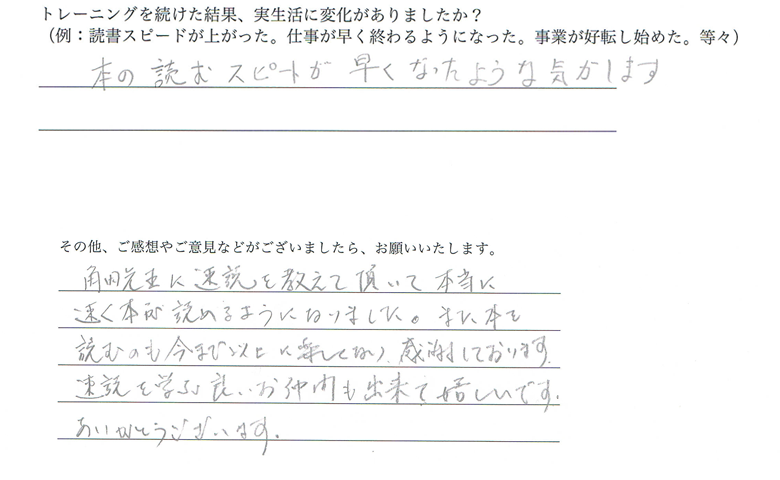 トレーニングを続けた結果、実生活に変化がありましたか？
（例：読書スピードが上がった。仕事が早く終わるようになった。事業が好転し始めた。等々）
本の読むスピードが早くなったような気がします
その他、ご感想やご意見などがございましたら、お願いいたします。
角田先生に速読を教えて頂いて本当に
速く本が読めるようになりました。また本を
読むのも今まで以上に楽しくなり感謝しております.
速読を学ぶ良いお仲間も出来て嬉しいです.
ありがとうございます.